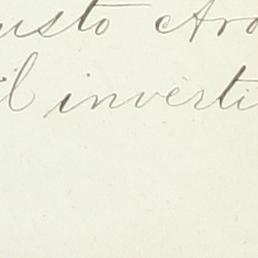 usto Aro
il inverti